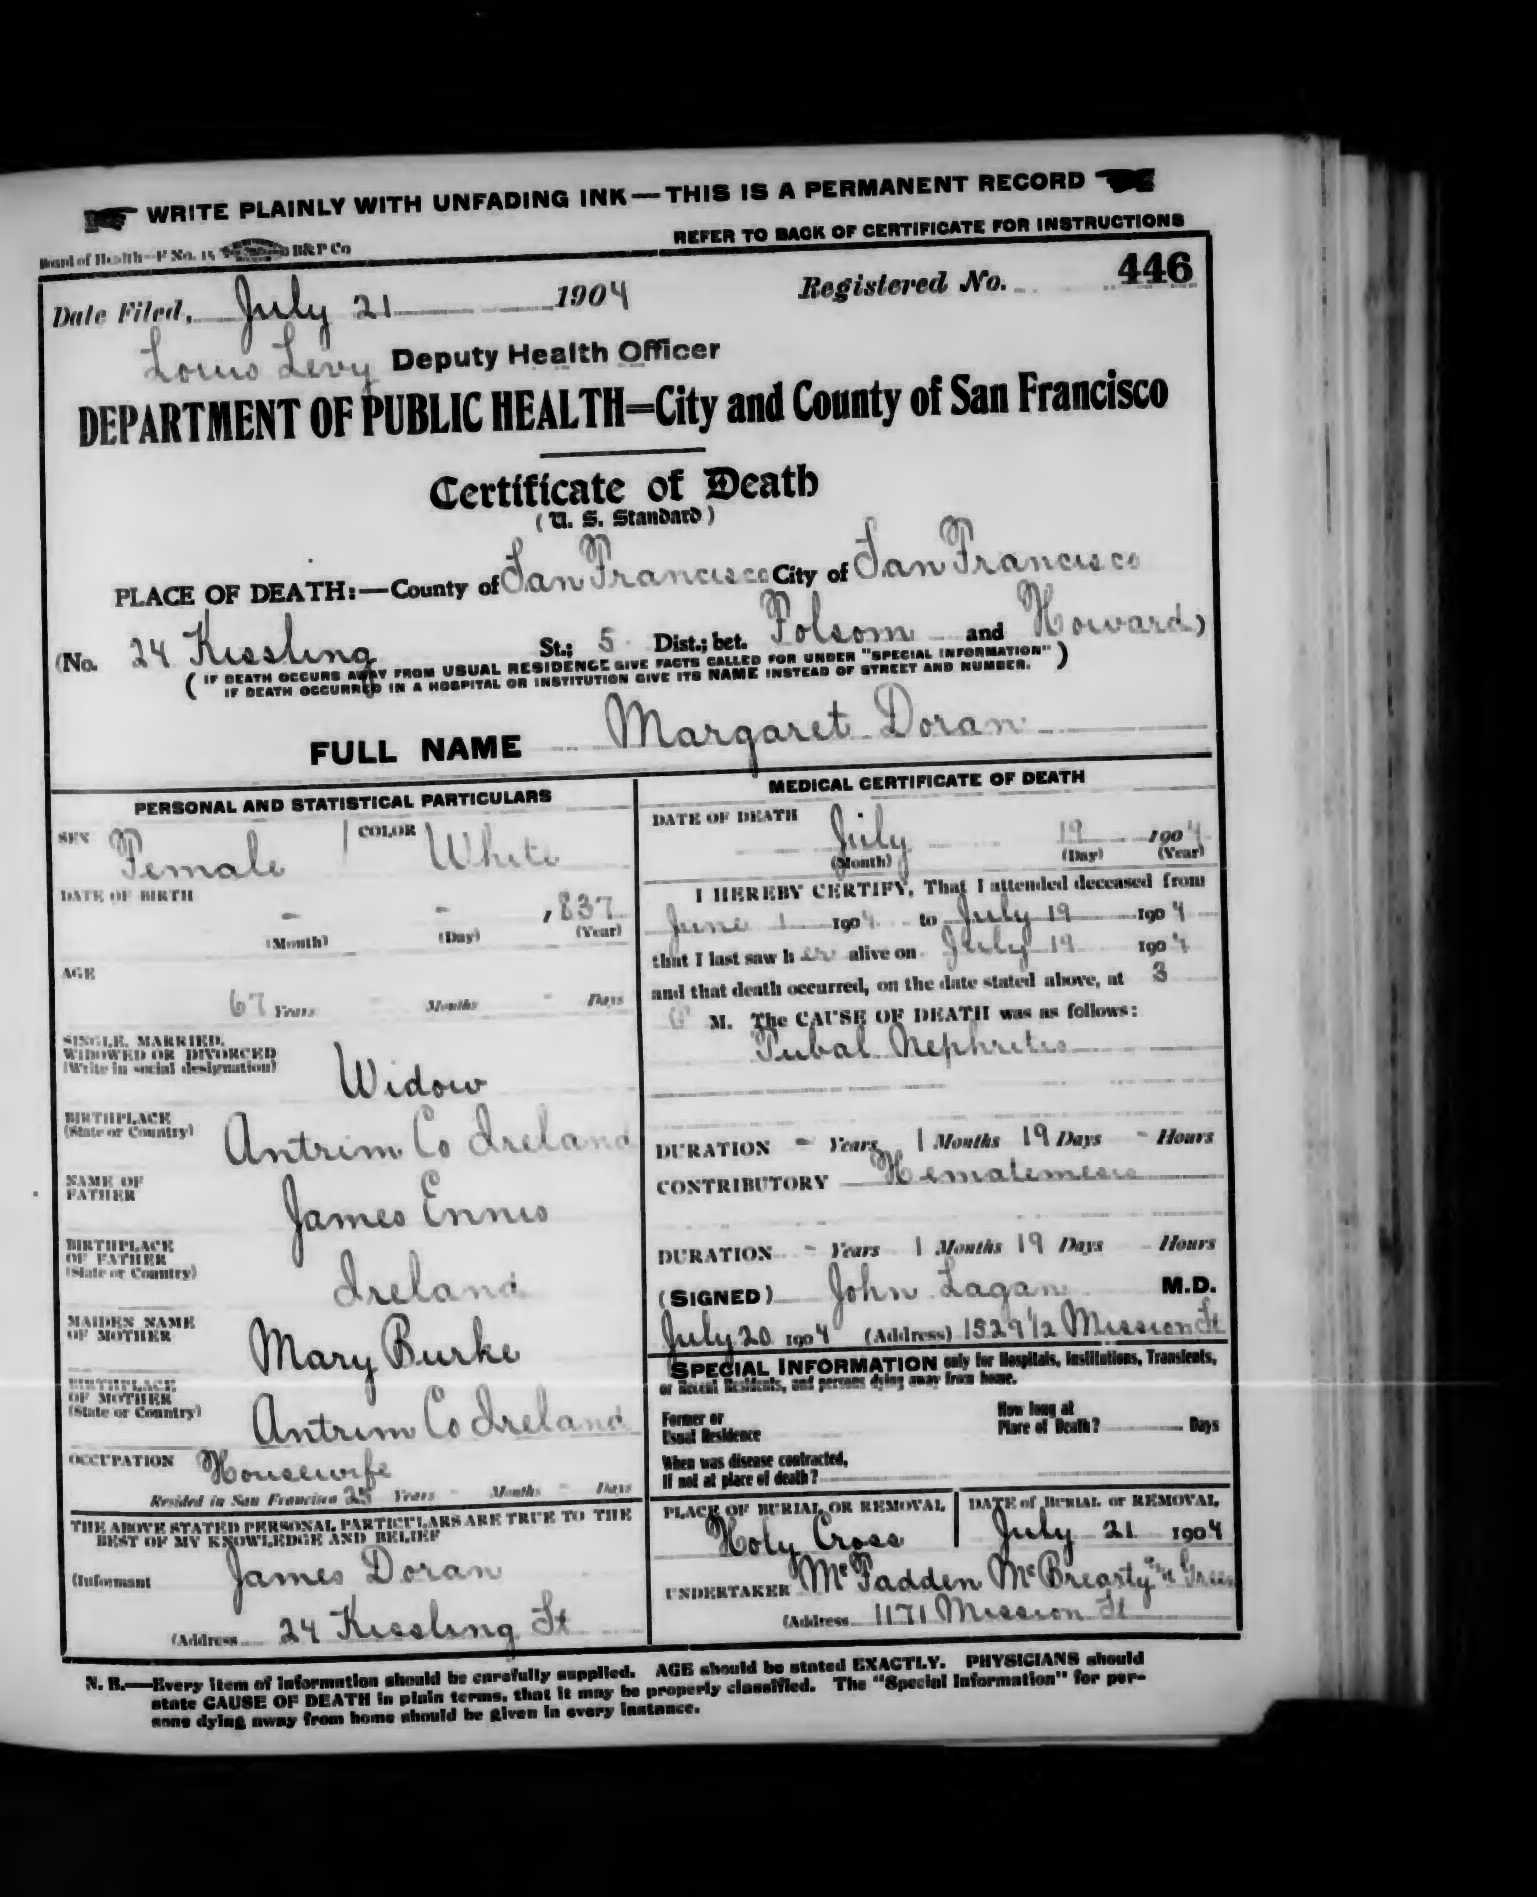 WRITE PLAINLY WITH UNFADING INK—THIS IS A PERMANENT RECORD
Board of Health—F No. 15 B&P Co
REFER TO BACK OF CERTIFICATE FOR INSTRUCTIONS
Date Filed, July 21 1904 Registered No. 446
Louis Levy Deputy Health Officer
DEPARTMENT OF PUBLIC HEALTH=City and County of San Francisco
Certificate of Death
(U. S. Standard)
PLACE OF DEATH:—County of San Francisco City of San Francisco
(No. 24 Kissling St.; 5 Dist.; bet. Folsom and Howard)
( IF DEATH OCCURS AWAY FROM USUAL RESIDENCE GIVE FACTS CALLED FOR UNDER "SPECIAL INFORMATION" )
IF DEATH OCCURRED IN A HOSPITAL OR INSTITUTION GIVE ITS NAME INSTEAD OF STREET AND NUMBER.
FULL NAME Margaret Doran
PERSONAL AND STATISTICAL PARTICULARS
SEX Female COLOR White
DATE OF BIRTH
- - , 837
(Month) (Day) (Year)
AGE
67 Years - Months - Days
SINGLE, MARRIED,
WIDOWED OR DIVORCED
(Write in social designation) Widow
BIRTHPLACE
(State or Country) Antrim Co Ireland
NAME OF
FATHER James Ennis
BIRTHPLACE
OF FATHER
(State or Country) Ireland
MAIDEN NAME
OF MOTHER Mary Burke
BIRTHPLACE
OF MOTHER
(State or Country) Antrim Co Ireland
OCCUPATION Housewife
Resided in San Francisco 25 Years - Months - Days
THE ABOVE STATED PERSONAL PARTICULARS ARE TRUE TO THE
BEST OF MY KNOWLEDGE AND BELIEF
(Informant James Doran
(Address 24 Kissling St
MEDICAL CERTIFICATE OF DEATH
DATE OF DEATH
July 19 1904
(Month) (Day) (Year)
I HEREBY CERTIFY, That I attended deceased from
June 1 1904 to July 19 1904
that I last saw her alive on July 19 1904
and that death occurred, on the date stated above, at 3
P M. The CAUSE OF DEATH was as follows:
Tubal Nephritis
DURATION - Years 1 Months 19 Days - Hours
CONTRIBUTORY Hematemesis
DURATION - Years 1 Months 19 Days - Hours
(SIGNED) John Lagan M.D.
July 20 1904 (Address) 1529 1/2 Mission St
SPECIAL INFORMATION only for Hospitals, Institutions, Transients,
or Recent Residents, and persons dying away from home.
Former or
Usual Residence
How long at
Place of Death? Days
When was disease contracted,
If not at place of death?
PLACE OF BURIAL OR REMOVAL
Holy Cross
DATE of BURIAL or REMOVAL
July 21 1904
UNDERTAKER McFadden McBrearty & Green
(Address 1171 Mission St
N. B.—Every item of information should be carefully supplied. AGE should be stated EXACTLY. PHYSICIANS should
state CAUSE OF DEATH in plain terms, that it may be properly classified. The "Special Information" for per-
sons dying away from home should be given in every instance.